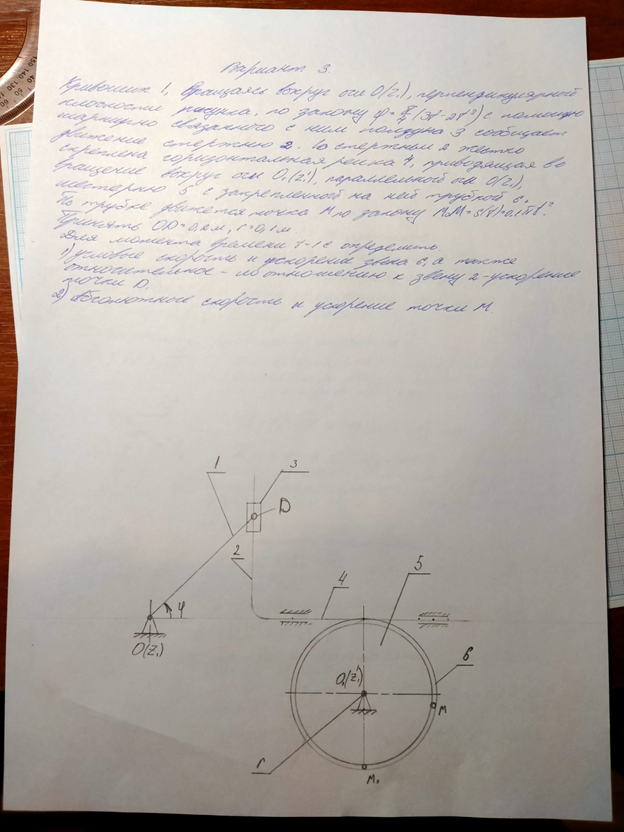 Вариант 3.
Кривошип 1, вращаясь вокруг оси O(z₁), перпендикулярной
плоскости рисунка, по закону φ = π/4 (3t - 2t²) с помощью
шарнирно связанного с ним ползуна 3 сообщает
движение стержню 2. Со стержнем 2 жестко
скреплена горизонтальная рейка 4, приводящая во
вращение вокруг оси O₁(z₁'), параллельной оси O(z₁),
шестерню 5 с закрепленной на ней трубкой 6.
По трубке движется точка M по закону M₀M = S(t) = 0,1πt²
Принять OD = м, r = 0,1 м
Для момента времени t = 1 с определить.
1) угловые скорость и ускорение звена 6, а также
относительное - по отношению к звену 2 - ускорение
точки D.
2) Абсолютные скорость и ускорение точки M.
1
3
D
2
φ
4
5
O(z₁)
O₁(z₁')
6
M
r
M₀